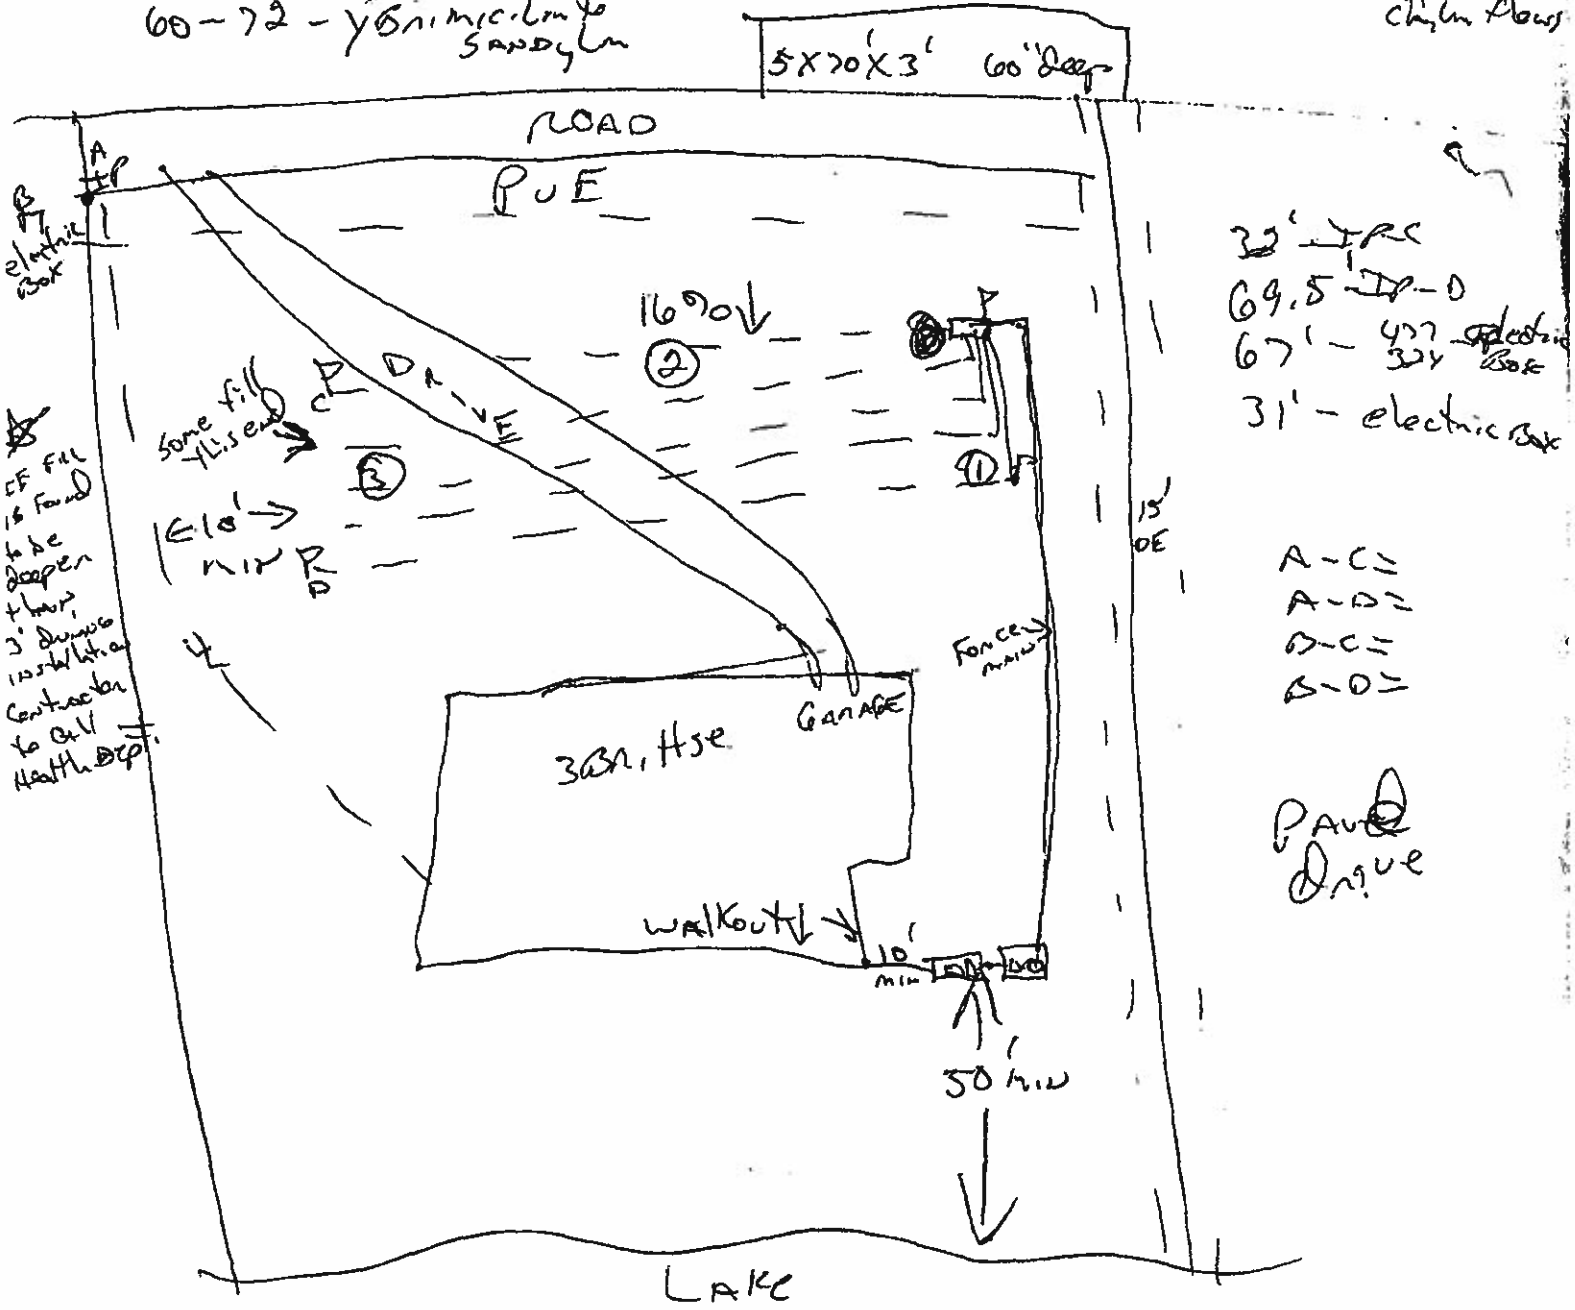 60-72-
SANDy Lm
5X70'X3' 60" deep
ROAD
PUE
A
IP
B
electric
Box
16% ↓
2
P
C
DRIVE
some fill
this end
3
1
←10'→
min
P
D
IF Fill
is Found
to be
deeper
than
3' during
installation
contractor
to call
Health Dep.
15'
DE
Force
main
GARAGE
3Br, Hse
WALKOUT↓
10'
min
50' min
LAKE
32'-IP-C
69.5'-IP-D
67'- electric
Box
31'- electric Box
A-C=
A-D=
B-C=
B-D=
PAVED
Drive